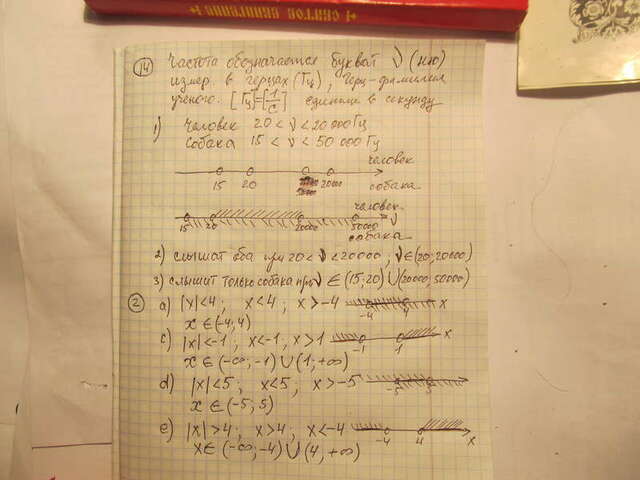 СВЯТОЕ ЕВАНГЕЛИЕ
14 Частота обозначается буквой ν (ню)
измер. в герцах (Гц), Герц - фамилия
ученого. [Гц]=[1/с] единица в секунду
1) человек 20 < ν < 20000 Гц
собака 15 < ν < 50 000 Гц
человек
15 20 20000 собака
человек
15 20 20000 50000 ν
собака
2) слышат оба при 20 < ν < 20000, ν ∈ (20; 20000)
3) слышит только собака при ν ∈ (15; 20) ∪ (20000; 50000)
2 a) |x|<4; x<4; x>-4 -4 4 x
x ∈ (-4; 4)
c) |x|<-1; x<-1, x>1 -1 1 x
x ∈ (-∞, -1) ∪ (1; +∞)
d) |x|<5; x<5; x>-5 -5 5
x ∈ (-5; 5)
e) |x|>4; x>4; x<-4 -4 4 x
x ∈ (-∞; -4) ∪ (4, +∞)